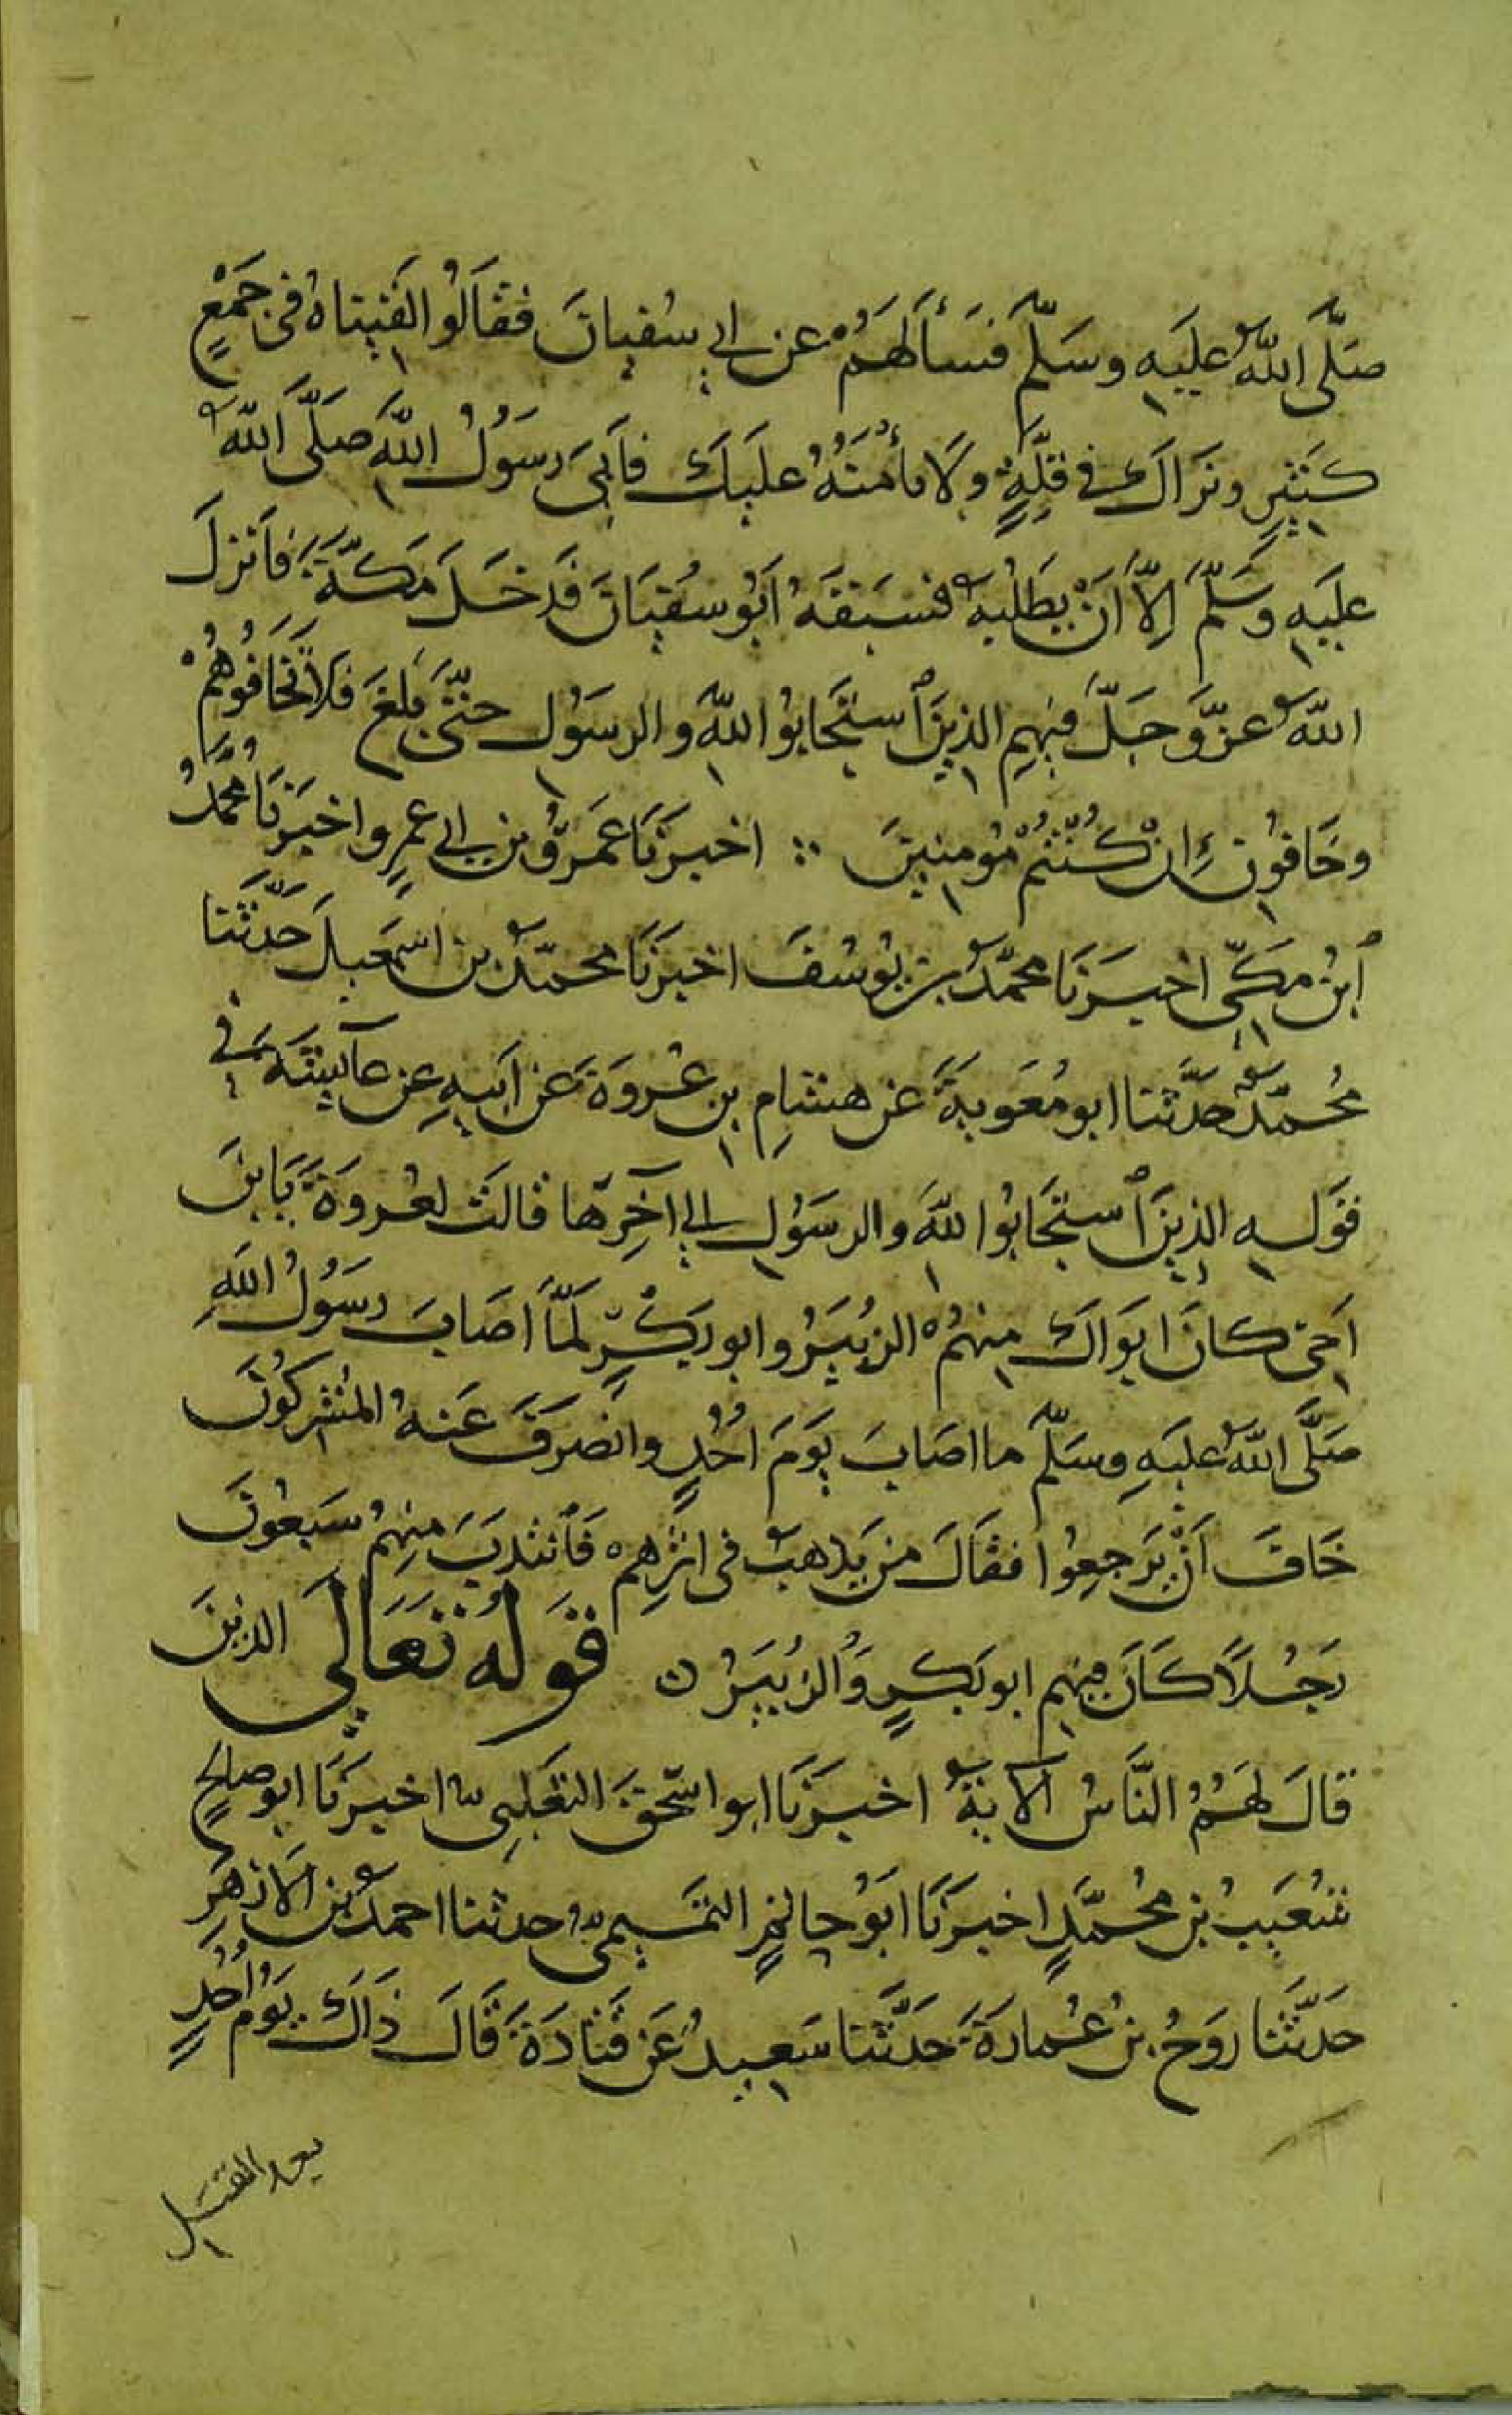 صَلَّى اللهُ عليَهِ وسَلَّمَ فسَأَلَهُمْ عن ابي سُفيانَ فقَالُوا لقيناهُ في جَمْعٍ
كثيرٍ ونَراكَ في قلَّةٍ ولَا نأمَنُهُ عليكَ فأبىَ رسوُلُ اللهِ صلَّى اللهُ
عليَهِ وسَلَّمَ اِلّا اَنْ يَطْلُبهُ فسَبقَهُ ابُو سفيَانَ فدَخلَ مكّةَ فأنزلَ
اللهُ عزّ وَجلَّ فيهِم الذينَ ٱستجَابوُا للهِ والرسَوُل حتّى بلغَ فلا تخَافوُهُمْ
وخَافوُنِ اِنْ كُنْتُمْ مؤمنينَ ∴ اخبرنَا عَمرُو بن ابي عمرٍو اخبَرنَا محمّدُ
ٱبنُ مكّيٍ اخبَرنَا محمّدُ بن يوُسُفَ اخبرنَا محمّدُ بن اسمعيلَ حَدّثنا
مُحمّدٌ حدَّثنا ابو مُعَويةَ عن هشامِ بن عُروَةَ عن ابيَهِ عن عآئشةَ في
قوَلهِ الذينَ ٱستجَابوُا للهِ والرسَوُلِ الي آخِرِها قالتْ لعُروَةَ يَا ابنَ
اخي كانَ ابوَاكَ منهمُ الزبُيَرُ وابو بَكْرٍ لَمّا اصَابَ رسَوُلُ اللهِ
صَلَّى اللهُ عليَهِ وسَلّمَ ما اصَابَ يوَمَ اُحُدٍ وانصَرفَ عَنهُ المُشركُونَ
خَافَ اَنْ يَرجعِوُا فقَالَ من يَذهبُ في اثرِهم فَٱنتدبَ منهِمُ سَبعوُنَ
رَجُلاً كَانَ فيهِم ابو بَكرٍ وَالزُبيَرُ ن قوَلُهُ تَعَالي الذينَ
قالَ لهَمُ النَّاسُ الآيةُ اخبرَنَا ابو اسحٰقَ الثعَلبِيُ اخبرَنَا ابو صالحٍ
شُعَيبُ بن مُحمَّدٍ اخبرَنَا ابَوُ حاتمٍ التمَيميُ حدثنا احمدُ بن الازهَرِ
حَدّثَنا روَحُ بنُ عُبادَةَ حَدَّثنا سَعيدٌ عَن قتَادَةَ قَالَ ذَاكَ يوَمُ اُحُدٍ
بعد القتل